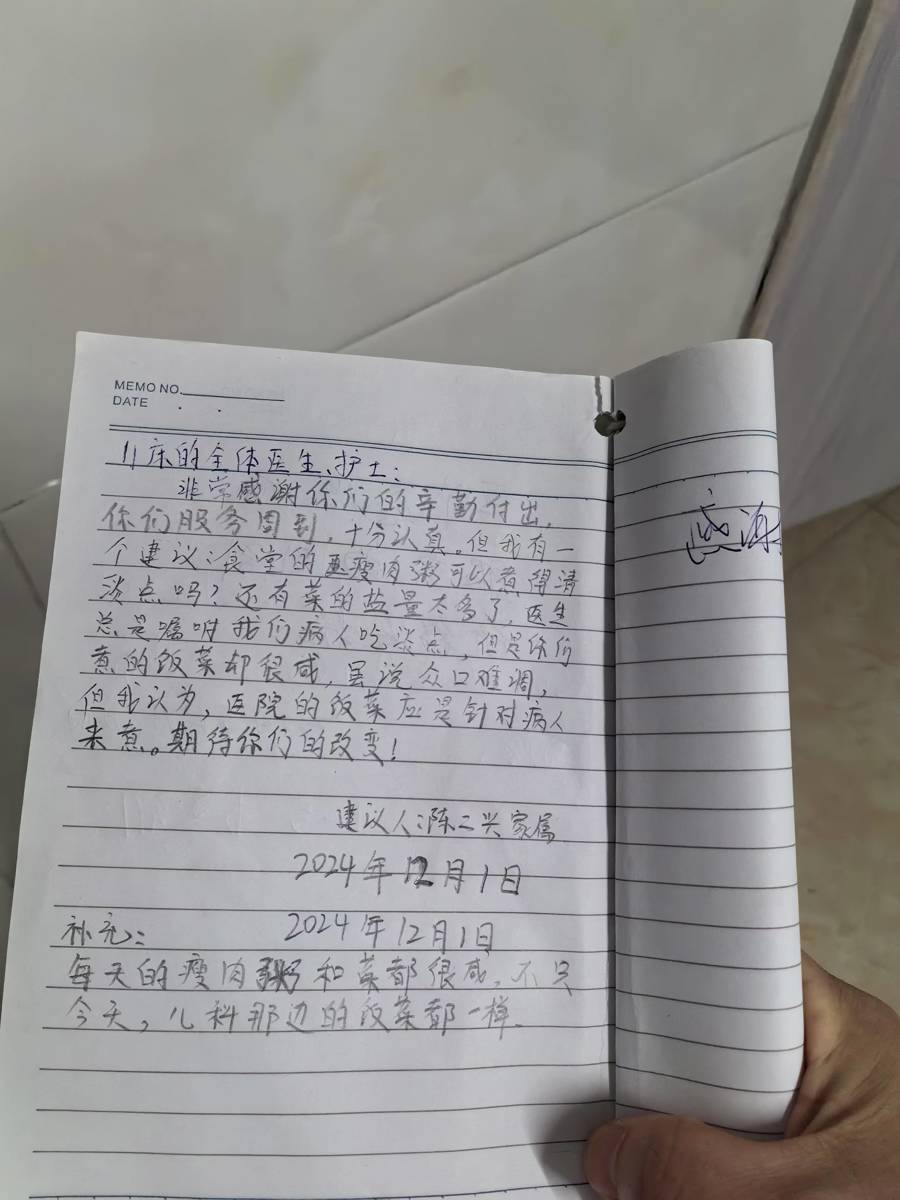 MEMO NO.
DATE . .
11床的全体医生、护士:
非常感谢你们的辛勤付出,
你们服务周到,十分认真。但我有一
个建议:食堂的瘦肉粥可以煮得清
淡点吗?还有菜的盐量太多了,医生
总是嘱咐我们病人吃淡点,但是你们
煮的饭菜却很咸,虽说众口难调,
但我认为,医院的饭菜应是针对病人
来煮。期待你们的改变!
建议人:陈二兴家属
2024年12月1日
补充: 2024年12月1日
每天的瘦肉粥和菜都很咸,不只
今天,儿科那边的饭菜都一样.
感谢